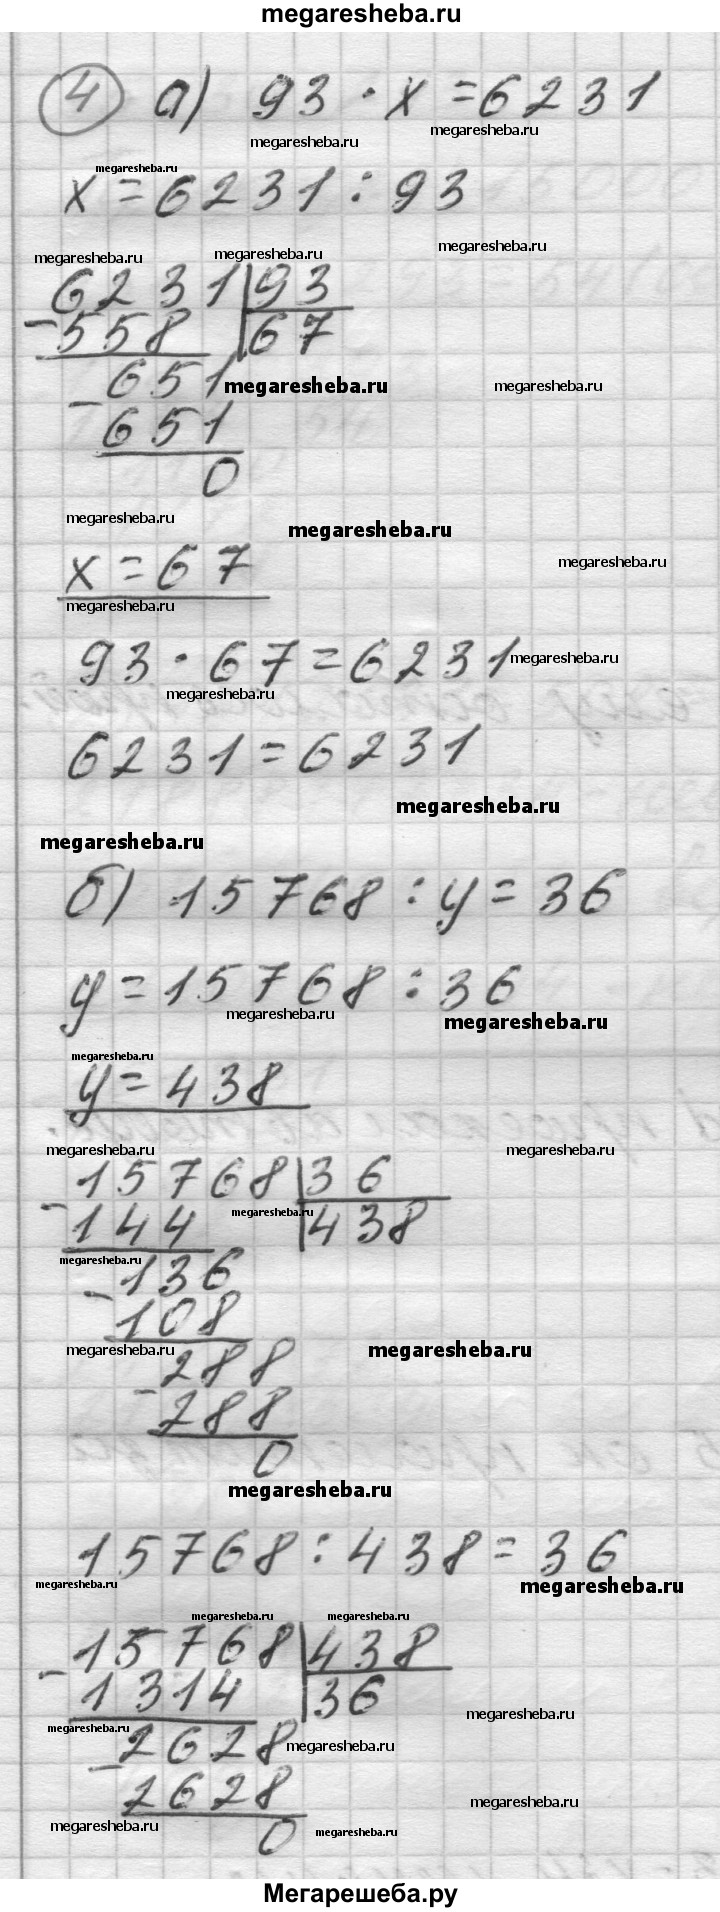 megaresheba.ru
4 а) 93 · x = 6231
megaresheba.ru megaresheba.ru
megaresheba.ru
x = 6231 : 93
megaresheba.ru megaresheba.ru megaresheba.ru
6231 | 93
- 558 | 67
651 megaresheba.ru megaresheba.ru
- 651
0
megaresheba.ru megaresheba.ru
x = 67 megaresheba.ru
megaresheba.ru
93 · 67 = 6231 megaresheba.ru
megaresheba.ru
6231 = 6231
megaresheba.ru
megaresheba.ru
б) 15768 : y = 36
y = 15768 : 36
megaresheba.ru megaresheba.ru
megaresheba.ru
y = 438
megaresheba.ru megaresheba.ru
15768 | 36
- 144 megaresheba.ru | 438
megaresheba.ru
- 136
108
megaresheba.ru megaresheba.ru
288
- 288
0
megaresheba.ru
15768 : 438 = 36
megaresheba.ru megaresheba.ru
megaresheba.ru megaresheba.ru
15768 | 438
- 1314 | 36
megaresheba.ru megaresheba.ru
- 2628 megaresheba.ru
2628 megaresheba.ru
megaresheba.ru 0 megaresheba.ru
Мегарешеба.ру